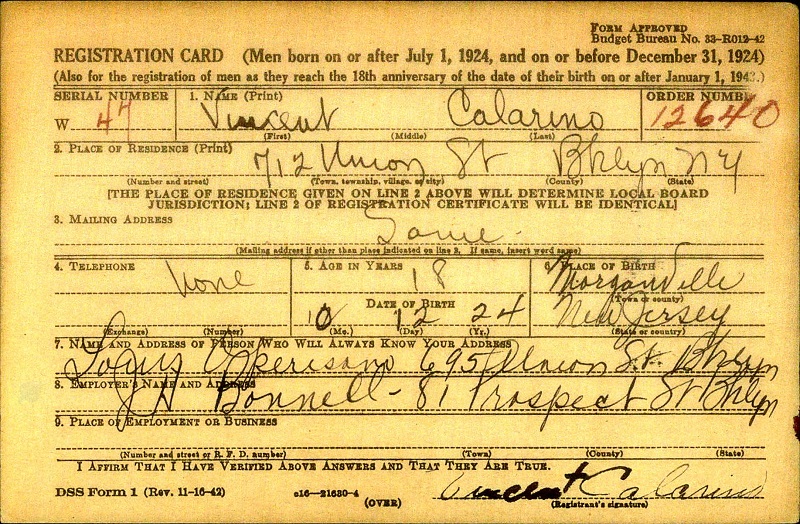 FORM APPROVED
Budget Bureau No. 33-R012-42
REGISTRATION CARD (Men born on or after July 1, 1924, and on or before December 31, 1924)
(Also for the registration of men as they reach the 18th anniversary of the date of their birth on or after January 1, 1943.)
SERIAL NUMBER 1. NAME (Print) ORDER NUMBER
W 47 Vincent Calarino 12640
(First) (Middle) (Last)
2. PLACE OF RESIDENCE (Print)
712 Union St Bklyn NY
(Number and street) (Town, township, village, or city) (County) (State)
[THE PLACE OF RESIDENCE GIVEN ON LINE 2 ABOVE WILL DETERMINE LOCAL BOARD
JURISDICTION; LINE 2 OF REGISTRATION CERTIFICATE WILL BE IDENTICAL]
3. MAILING ADDRESS
Same
(Mailing address if other than place indicated on line 2. If same, insert word same)
4. TELEPHONE 5. AGE IN YEARS 6. PLACE OF BIRTH
None 18 Morganville
DATE OF BIRTH (Town or county)
10 12 24 New Jersey
(Exchange) (Number) (Mo.) (Day) (Yr.) (State or country)
7. NAME AND ADDRESS OF PERSON WHO WILL ALWAYS KNOW YOUR ADDRESS
695 Union St. Bklyn
8. EMPLOYER'S NAME AND ADDRESS
J H Bonnell - 81 Prospect St Bklyn
9. PLACE OF EMPLOYMENT OR BUSINESS
(Number and street or R. F. D. number) (Town) (County) (State)
I AFFIRM THAT I HAVE VERIFIED ABOVE ANSWERS AND THAT THEY ARE TRUE.
DSS Form 1 (Rev. 11-16-42) c16-21630-4 Vincent Calarino
(OVER) (Registrant's signature)